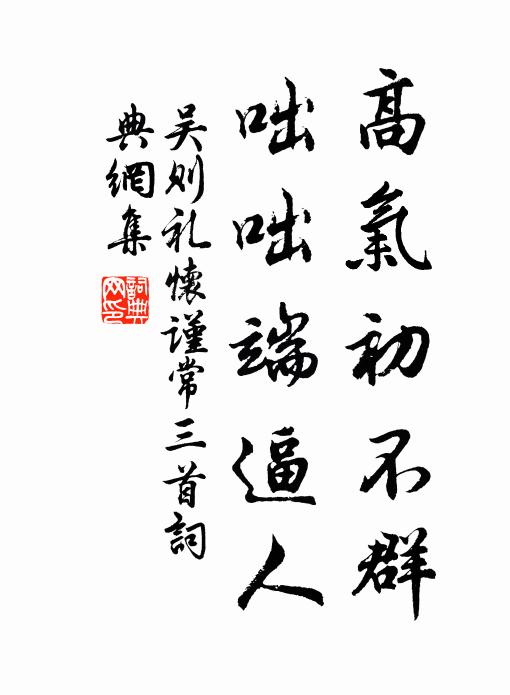 高氣初不群
咄咄端逼人
吴则礼懷謹常三首詞
典網集
詞典
网印